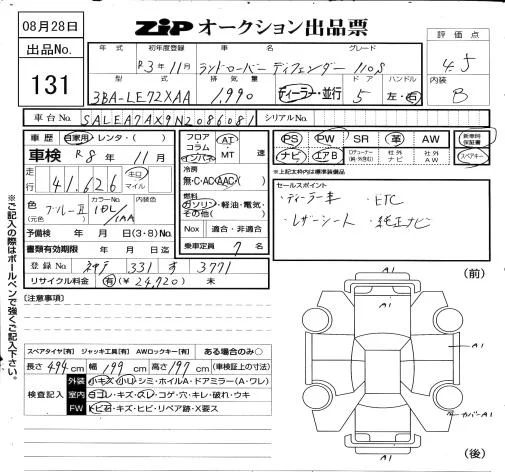 08月28日
出品No.
131
ZiP オークション出品票
評価点
4.5
内装
B
年式 初年度登録 車名 グレード
R3年11月 ランドローバー ディフェンダー 110S
型式 排気量 ドア ハンドル
3BA-LE72XAA 1,990 ディーラー・並行 5 左・右
車台No. SALEA7AX9N2086081 シリアルNo.
車歴 自家用・レンタ・( )
車検 R8年11月
走行 41,626 キロ マイル
色(元色) ブルーII カラーNo. 1DL 1AA 内装色
予備検 年 月 日(3・8)No.
書類有効期限 年 月 日迄
登録No. 331 す 3771
リサイクル料金 有(¥24,720) 未
フロア コラム インパネ AT MT 速
冷房 無・C・AC・AAC( )
燃料 ガソリン・軽油・電気・その他( )
Nox 適合・非適合
乗車定員 7 名
PS PW SR 革 AW 新車時保証書
ナビ エアB TVチューナー(純・外含む) 社外ナビ 社外AW スペアキー
※上記太枠内は標準装備品
セールスポイント
ディーラー車 ETC
レザーシート 純正ナビ
※ご記入の際はボールペンで強くご記入下さい。
[注意事項]
スペアタイヤ[有] ジャッキ工具[有] AWロックキー[有] ある場合のみ○
長さ 494cm 幅 199cm 高さ 197cm (車検証上の寸法)
検査記入
外装 小キズ・小U・シミ・ホイルA・ドアミラー(A・ワレ)
室内 ヨゴレ・キズ・スレ・コゲ・穴・キレ・破れ・ウキ
FW トビ石・キズ・ヒビ・リペア跡・X要ス
(前)
A1
A1
A1
カバーA1
A1
(後)